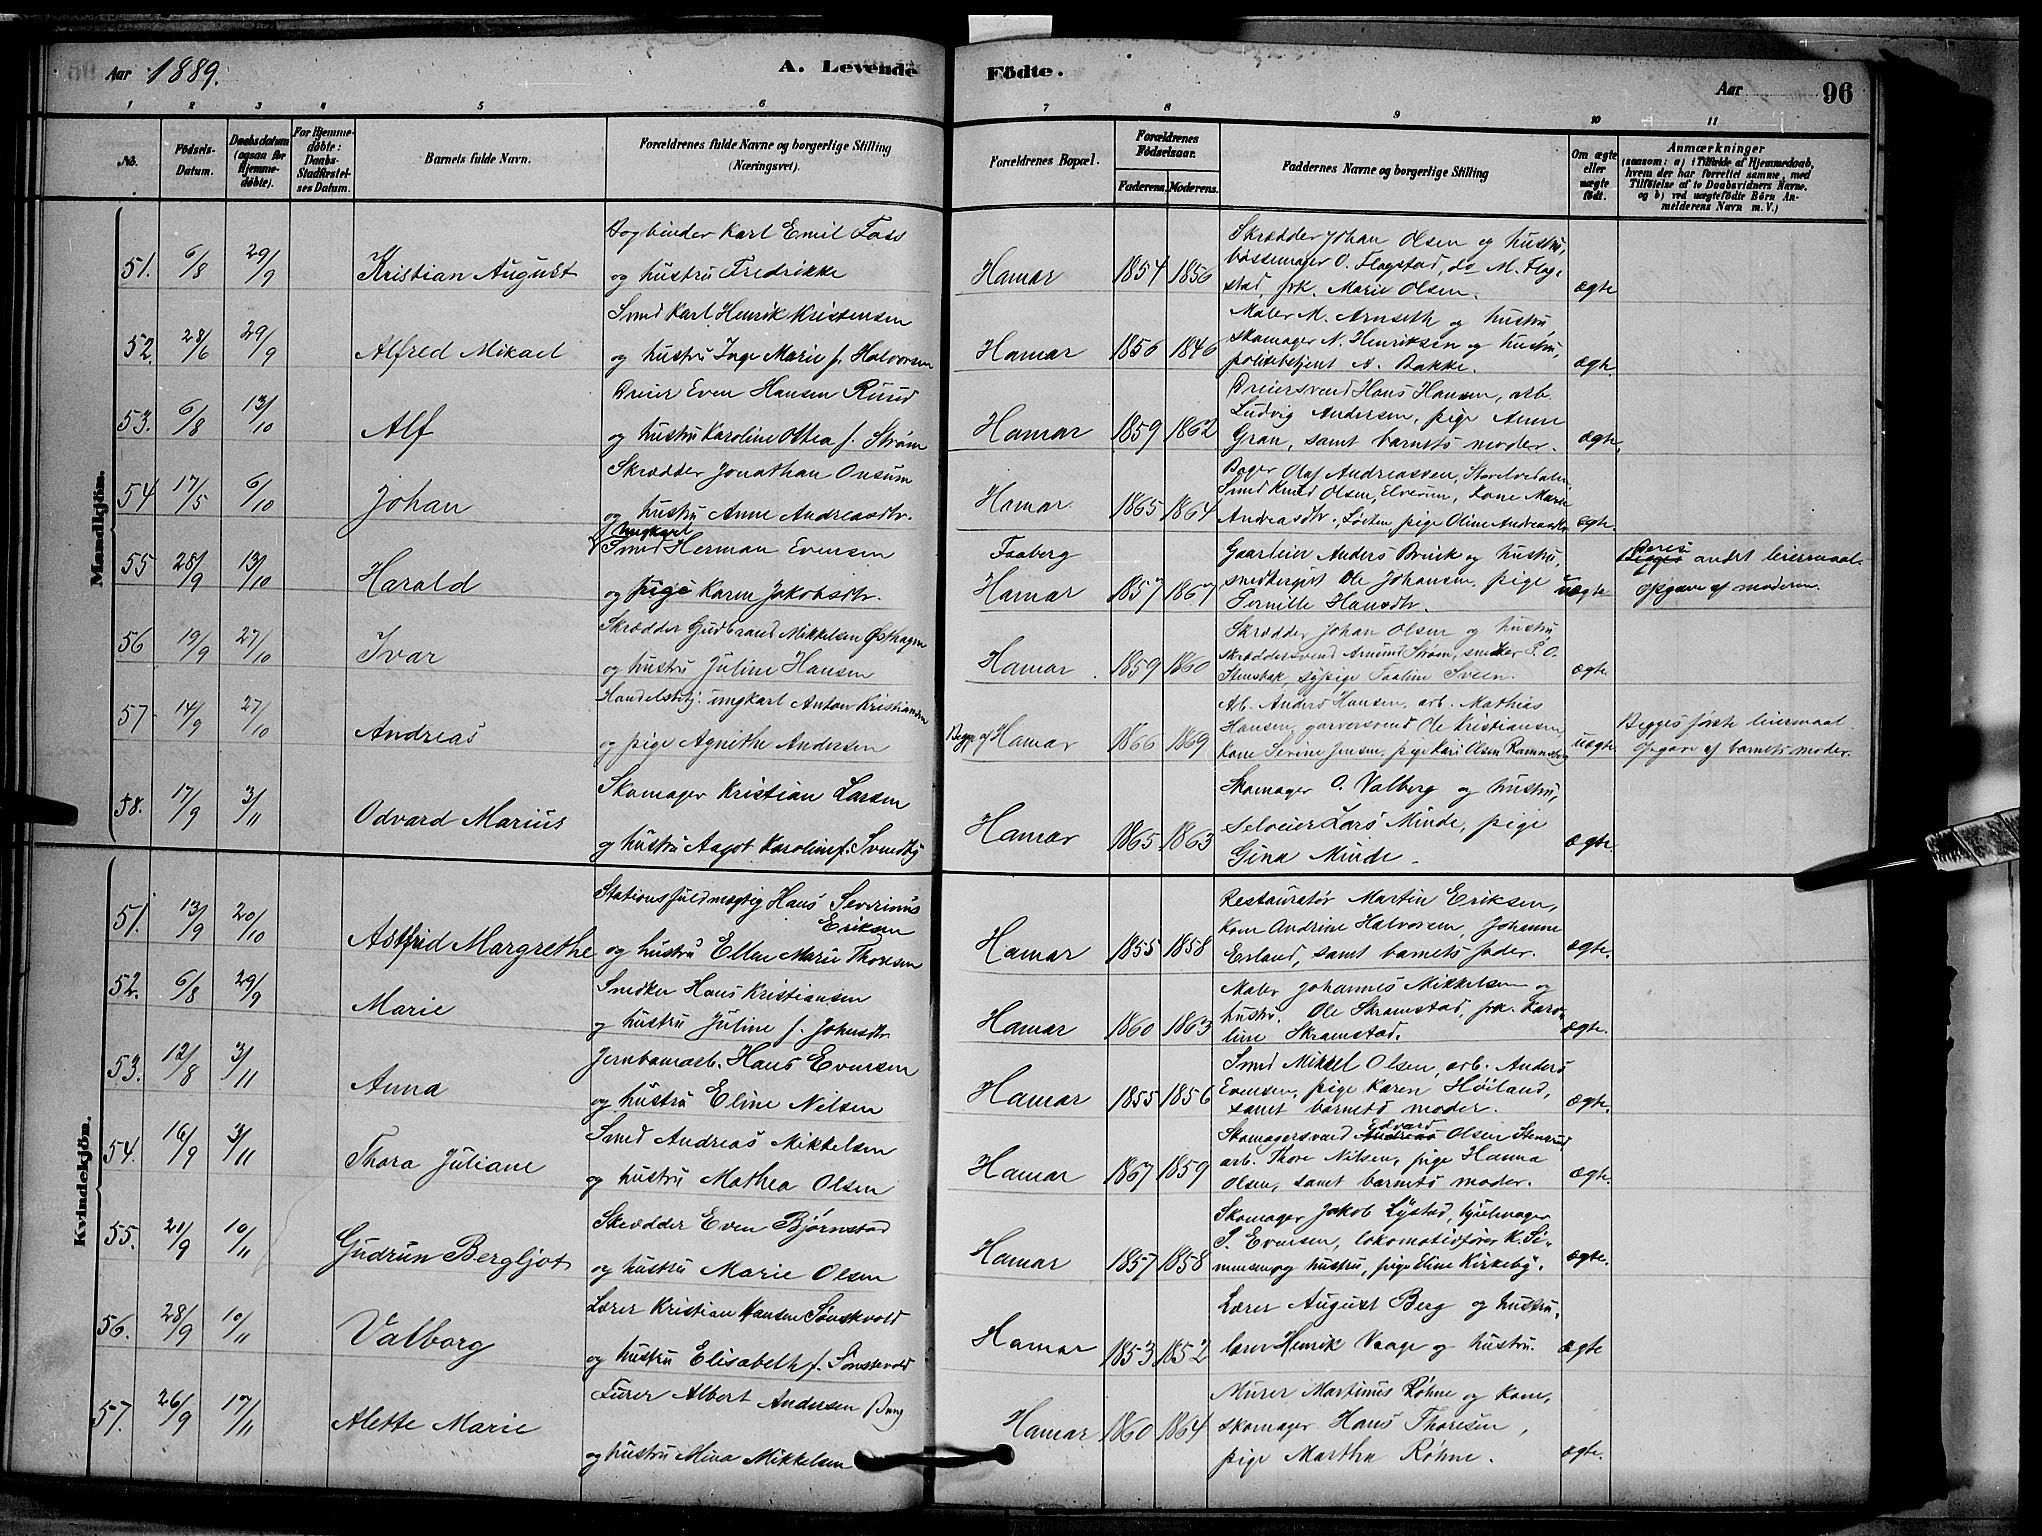 Aar 1889. A. Levende Födte. Aar 96
1 2 3 4 5 6 7 8 9 10 11
No. Födsels-Datum. Daabsdatum (ogsaa for Hjemmedøbte). For Hjemmedøbte: Daabs-Stadfæstelses Datum. Barnets fulde Navn. Forældrenes fulde Navne og borgerlige Stilling (Næringsvei). Forældrenes Bopæl. Forældrenes Födselsaar. Faderens. Moderens. Faddernes Navne og borgerlige Stilling Om ægte eller uægte født. Anmærkninger (saasom: a) i Tilfælde af Hjemmedaab, hvem der har forrettet samme, med Tilføielse af to Daabsvidners Navne. og b) ved uægtefødte Börn Anmelderens Navn m. V.)
Mandkjön.
Bogbinder Karl Emil Foss Skrædder Johan Olsen og hustru,
51. 6/8 29/9 Kristian August og hustru Fredrikke Hamar 1854 1856 bøssemager O. Flagstad, do M. Flag-
stad, frk. Marie Olsen. ægte
Smed Karl Henrik Kristensen Maler M. Arnseth og hustru,
52. 28/6 29/9 Alfred Mikael og hustru Inge Marie f. Halvorsen Hamar 1856 1846 skomager N. Henriksen og hustru,
politibetjent A. Bakke. ægte.
Dreier Even Hansen Ruud Dreiersvend Hans Hansen, arb.
53. 6/8 13/10 Alf og hustru Karoline Othea f. Strøm Hamar 1859 1862 Ludvig Andersen, pige Anne
Gran, samt barnets moder. ægte.
Skrædder Jonathan Onsum Bager Olaf Andreassen,
54 17/5 6/10 Johan og hustru Anne Andreasdtr. Hamar 1865 1864 Smed Knud Olsen, Elverum, kone Marie
Andreasdtr., Løiten, pige Oline ægte.
ungkarl
Smed Herman Evensen Faaberg Gaardeier Anders Brink og hustru, Deres andet leiermaal
55 28/9 13/10 Harald og pige Karen Jakobsdtr. Hamar 1857 1867 Ole Johansen, pige uægte Opgave af moderen.
Pernille Hansdtr.
Skrædder Gudbrand Mikkelsen Østhagen Skrædder Johan Olsen og hustru,
56 19/9 27/10 Ivar og hustru Juline Hansen Hamar 1859 1860 skræddersvend Amund Strøm, snedker P. O.
Stensbak, sypige Paaline Sveen. ægte.
Handelsbetj. ungkarl Anton Kristiansen Arb. Anders Hansen, arb. Mathias
57 14/9 27/10 Andreas og pige Agnethe Andersen Begge af Hamar 1866 1869 Hansen, garversvend Ole Kristiansen, uægte Begges første leiermaal.
kone Serine Jensen, pige Kari Olsen Opgave af barnets moder.
Skomager Kristian Larsen Skomager O. Valberg og hustru,
58. 17/9 3/11 Odvard Marius og hustru Aagot Karoline f. Svendby Hamar 1865 1863 selveier Lars Minde, pige
Gina Minde. ægte.
Kvindekjön.
Stationsfuldmægtig Hans Severinus Restauratør Martin Eriksen,
51. 13/9 20/10 Astrid Margrethe Eriksen og hustru Ellen Marie Thoresen Hamar 1855 1858 Kone Andrine Halvorsen, Johanne
Erland, samt barnets fader. ægte.
Snedker Hans Kristiansen Maler Johannes Mikkelsen og
52. 6/8 29/9 Marie og hustru Juline f. Johnsdtr. Hamar 1860 1863 hustru, Ole Skramstad, frk. Karo-
line Skramstad. ægte.
Jernbanearb. Hans Evensen Smed Mikkel Olsen, arb. Anders
53. 12/8 3/11 Anna og hustru Eline Nilsen Hamar 1855 1856 Evensen, pige Karen Høiland,
samt barnets moder. ægte.
Smed Andreas Mikkelsen Skomagersvend Andreas Edvard Olsen Stensrud,
54. 16/9 3/11 Thora Juliane og hustru Mathea Olsen Hamar 1867 1859 arb. Thore Nilsen, pige Hanna
Olsen, samt barnets moder. ægte.
Skrædder Even Bjørnstad Skomager Jakob Lystad, hjulmager
55. 21/9 10/11 Gudrun Bergljot og hustru Marie Olsen Hamar 1857 1858 P. Evensen, lokomotivfører K. Si-
monsen og hustru, pige Eline Kirkeby. ægte.
Lærer Kristian Hansen Sønstevold Lærer August Berg og hustru,
56. 28/9 10/11 Valborg og hustru Elisabeth f. Sønstevold Hamar 1853 1852 lærer Henrik Vaage og hustru. ægte
Furer Albert Andersen Bang Murer Martinus Røhne og kone,
57. 26/9 17/11 Alette Marie og hustru Mina Mikkelsen Hamar 1860 1864 skomager Hans Thoresen,
pige Martha Røhne. ægte.